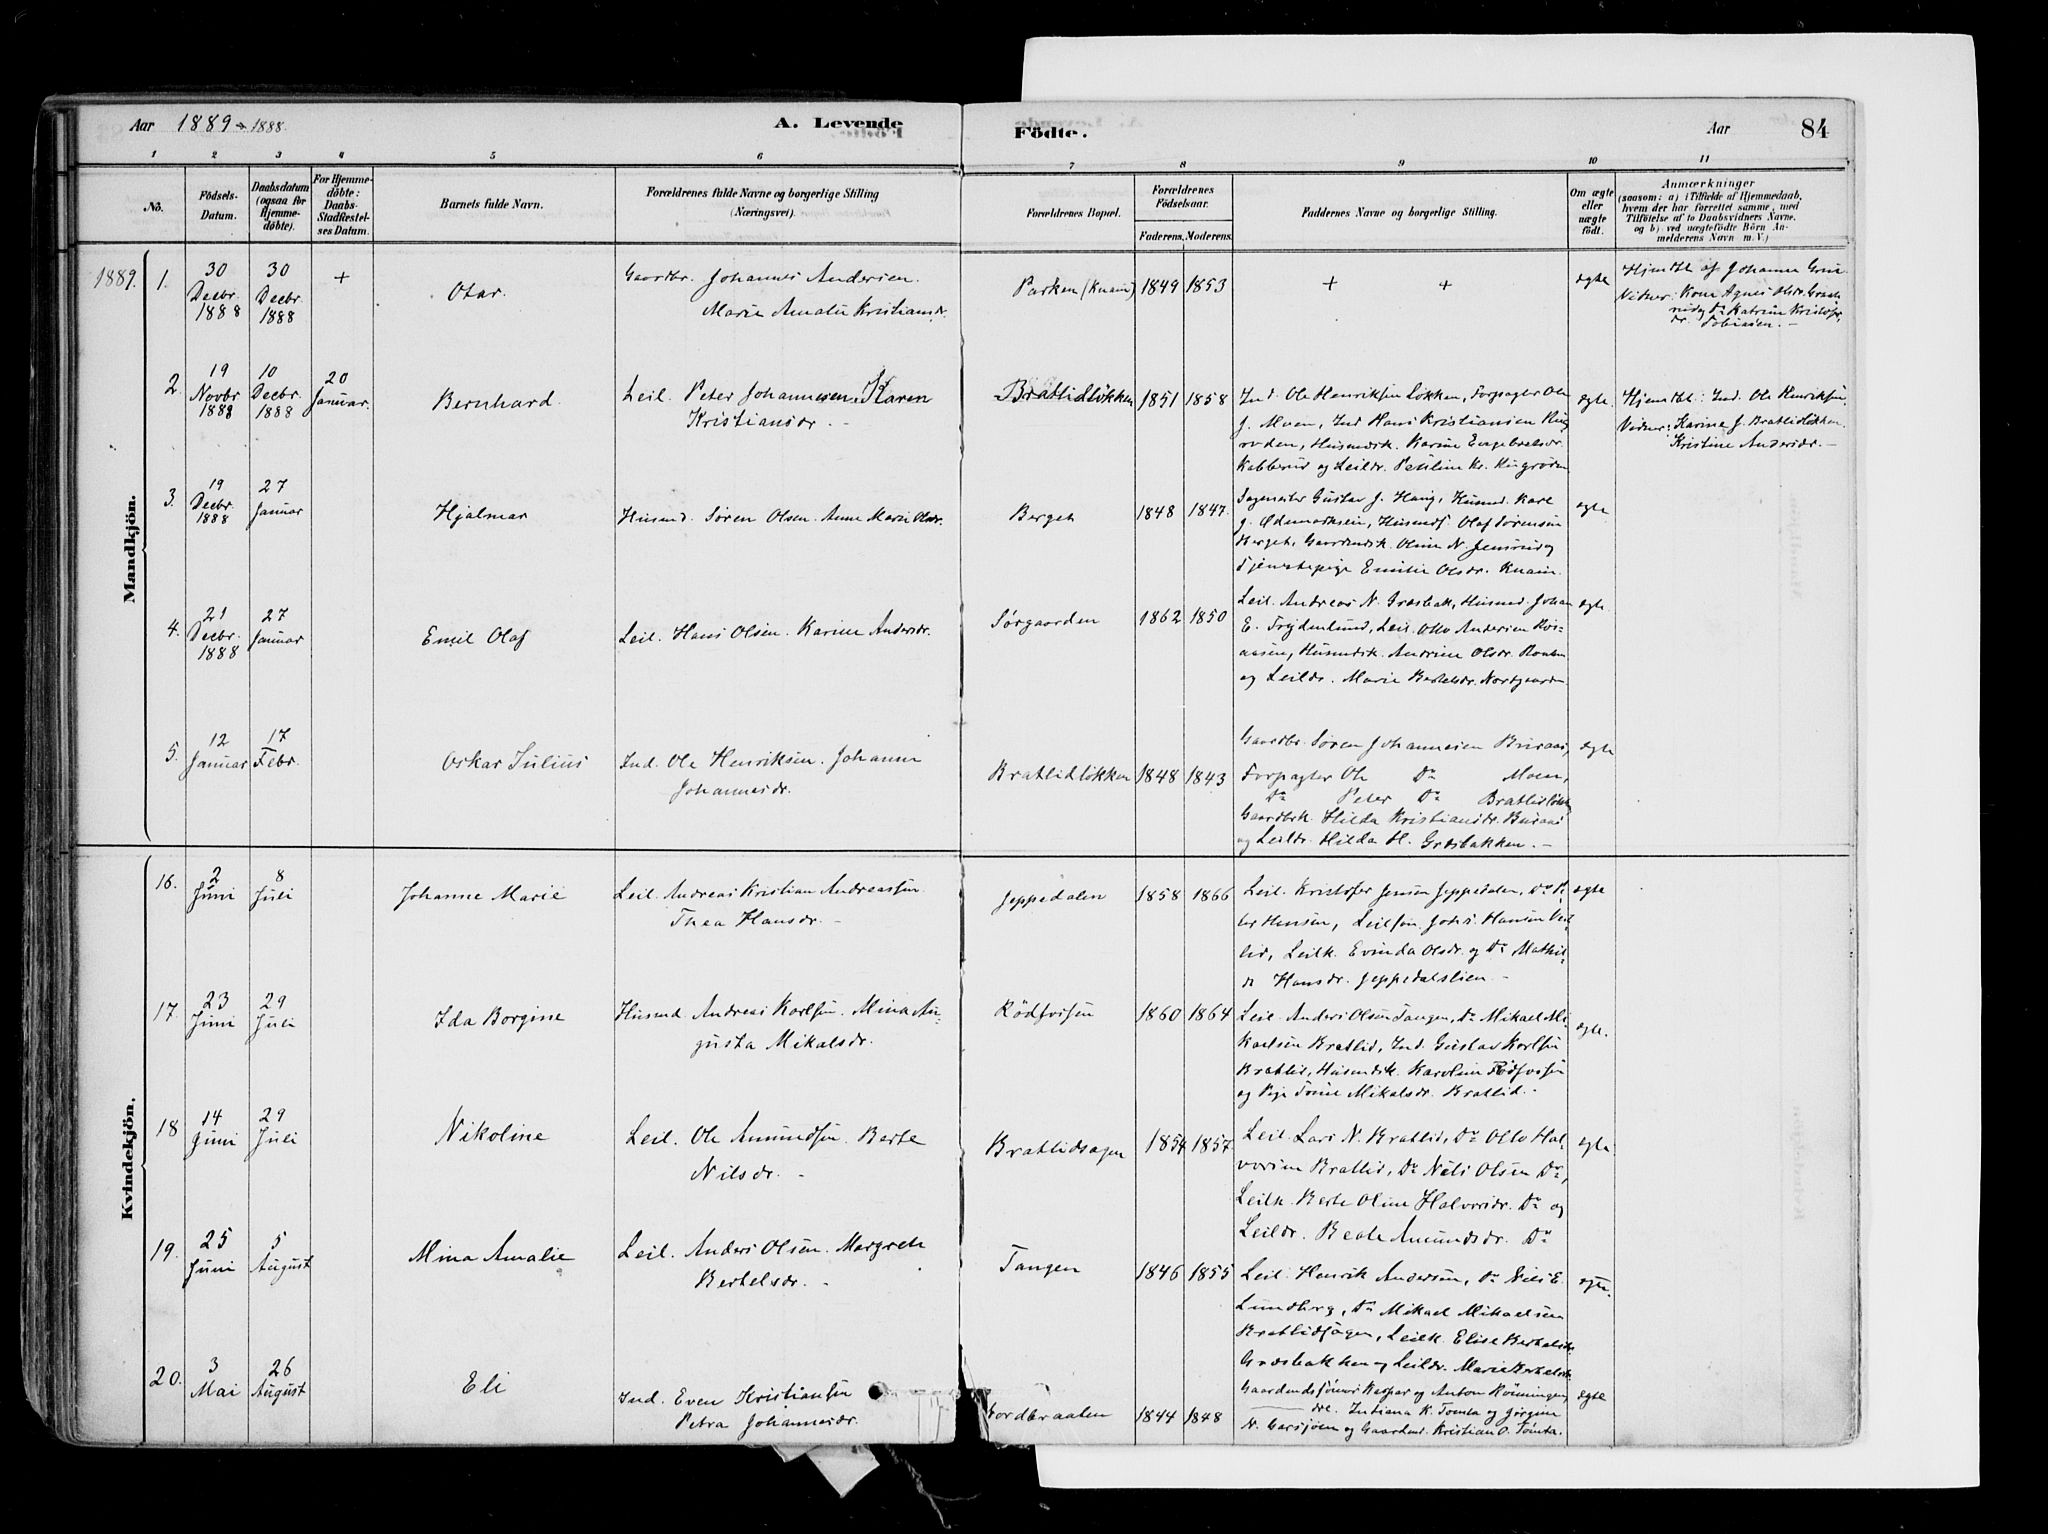 Aar 1889 & 1888.
A. Levende
Födte.
Aar 84
1 2 3 4 5 6 7 8 9 10 11
No. Födsels-Datum. Daabsdatum (ogsaa for Hjemmedøbte). For Hjemmedøbte: Daabs-Stadfæstelses Datum. Barnets fulde Navn. Forældrenes fulde Navne og borgerlige Stilling (Næringsvei). Forældrenes Bopæl. Forældrenes Födselsaar. Faderens. Moderens. Faddernes Navne og borgerlige Stilling. Om ægte eller uægte födt. Anmærkninger (saasom: a) i Tilfælde af Hjemmedaab, hvem der har forrettet samme, med Tilföielse af to Daabsvidners Navne. og b) ved uægtefödte Börn Anmelderens Navn m. V.)
Mandkjön.
1889. 1. 30 Decbr. 1888 30 Decbr. 1888 + Otar. Gaardbr. Johannes Andersen.
Marie Amalie Kristiansdr.
Parken (Knain) 1849 1853 + + ægte
Hjemdbt af Johanne
Vidner: Kone Agnes Olsdr.
Katrine
Tobiasen. -
2. 19 Novbr 1888 10 Decbr 1888 20 Januar. Bernhard. Leil. Peter Johannesen. Karen
Kristiansdr. -
Bratlidløkken 1851 1858 Ind. Ole Henriksen Løkken, Forpagter Ole
J. Moen, Ind Hans Kristiansen
Husmdsk. Karine Engebretsdr.
Kabberud og Leildr. Pauline Kr.
ægte.
Hjemdbt: Ind. Ole Henriksen
Vidner: Karine J. Bratlidløkken.
Kristine Andersdr. -
3. 19 Decbr 1888 27 Januar Hjalmar Husmd. Søren Olsen. Anne Marie Olsdr.
Berget 1848 1847. Sagmester Gustav J. Haug, Husmd. Karl
G. Husmdf. Olaf Sørensen
Berget, Gaardmdsk. Oline N. Jensrud og
Tjenestepige Emilie Olsdr. Knain.
ægte.
4. 21 Decbr. 1888 27 Januar Emil Olaf Leil. Hans Olsen. Karine Andersdr.
Sørgaarden 1862 1850 Leil. Andreas N. Græsbak, Husmd. Johan
E. Frydenlund, Leil. Otto Andersen
Husmdsk. Andrine Olsdr.
og Leildr. Marie Bertelsdr. Nordgaarden
ægte.
5. 12 Januar 17 Febr. Oskar Julius Ind. Ole Henriksen. Johanne
Johannesdr.
Bratlidløkken 1848 1843 Gaardbr. Søren Johannesen Buraas,
Forpagter Ole Do Moen,
Do Peter Do Bratlidløkken
Gaardbrk. Hilda Kristiansdr. Buraas
og Leildr. Hilda H. Græsbakken. -
ægte
Kvindekjön.
16. 2 Juni 8 Juli Johanne Marie Leil. Andreas Kristian Andreassen.
Thea Hansdr. -
Jeppedalen 1858 1866 Leil. Kristofer Jensen Jeppedalen, Do Pe-
ter Hansen, Leilsøn Johs. Hansen
Leilk. Evinda Olsdr. og Do Mathil-
de Hansdr. Jeppedalslien -
ægte
17. 23 Juni 29 Juli Ida Borgine Husmd Andreas Karlsen. Mina Au-
gusta Mikalsdr.
Rödsvisen 1860 1864 Leil. Anders Olsen Tangen, Do Mikael Mi-
kaelsen Bratlid, Ind. Gustav Karlsen
Bratlid, Husmdsk. Karoline Rödsvisen
og Pige Tomine Mikalsdr. Bratlid. -
ægte.
18 14 Juni 29 Juli Nikoline Leil. Ole Amundsen. Berte
Nilsdr. -
Bratlidsagen 1854 1857 Leil. Lars N. Bratlid, Do Otto Hal-
vorsen Bratlid, Do Nils Olsen Do,
Leilk. Berte Oline Halvorsdr. Do og
Leildr. Beate Amundsdr. Do
ægte
19. 25 Juni 5 August Mina Amalie Leil. Anders Olsen. Margrete
Bertelsdr. -
Tangen 1846 1855 Leil. Henrik Andersen, Do Nils E.
Lundberg, Do Mikael Mikaelsen
Bratlidsagen, Leilk. Elise Bertelsdr.
Græsbakken og Leildr. Marie Bertelsdr.
ægte.
20. 3 Mai 26 August Eli Ind. Even Kristiansen
Petra Johannesdr.
Nordbraaten 1844 1848 Gaardmdssønner Kaspar og Anton Rönningen,
dre. Indiana K. Tomta og Jørgine
N. Garsjøen og Gaardmd. Kristian O. Tomta.
ægte